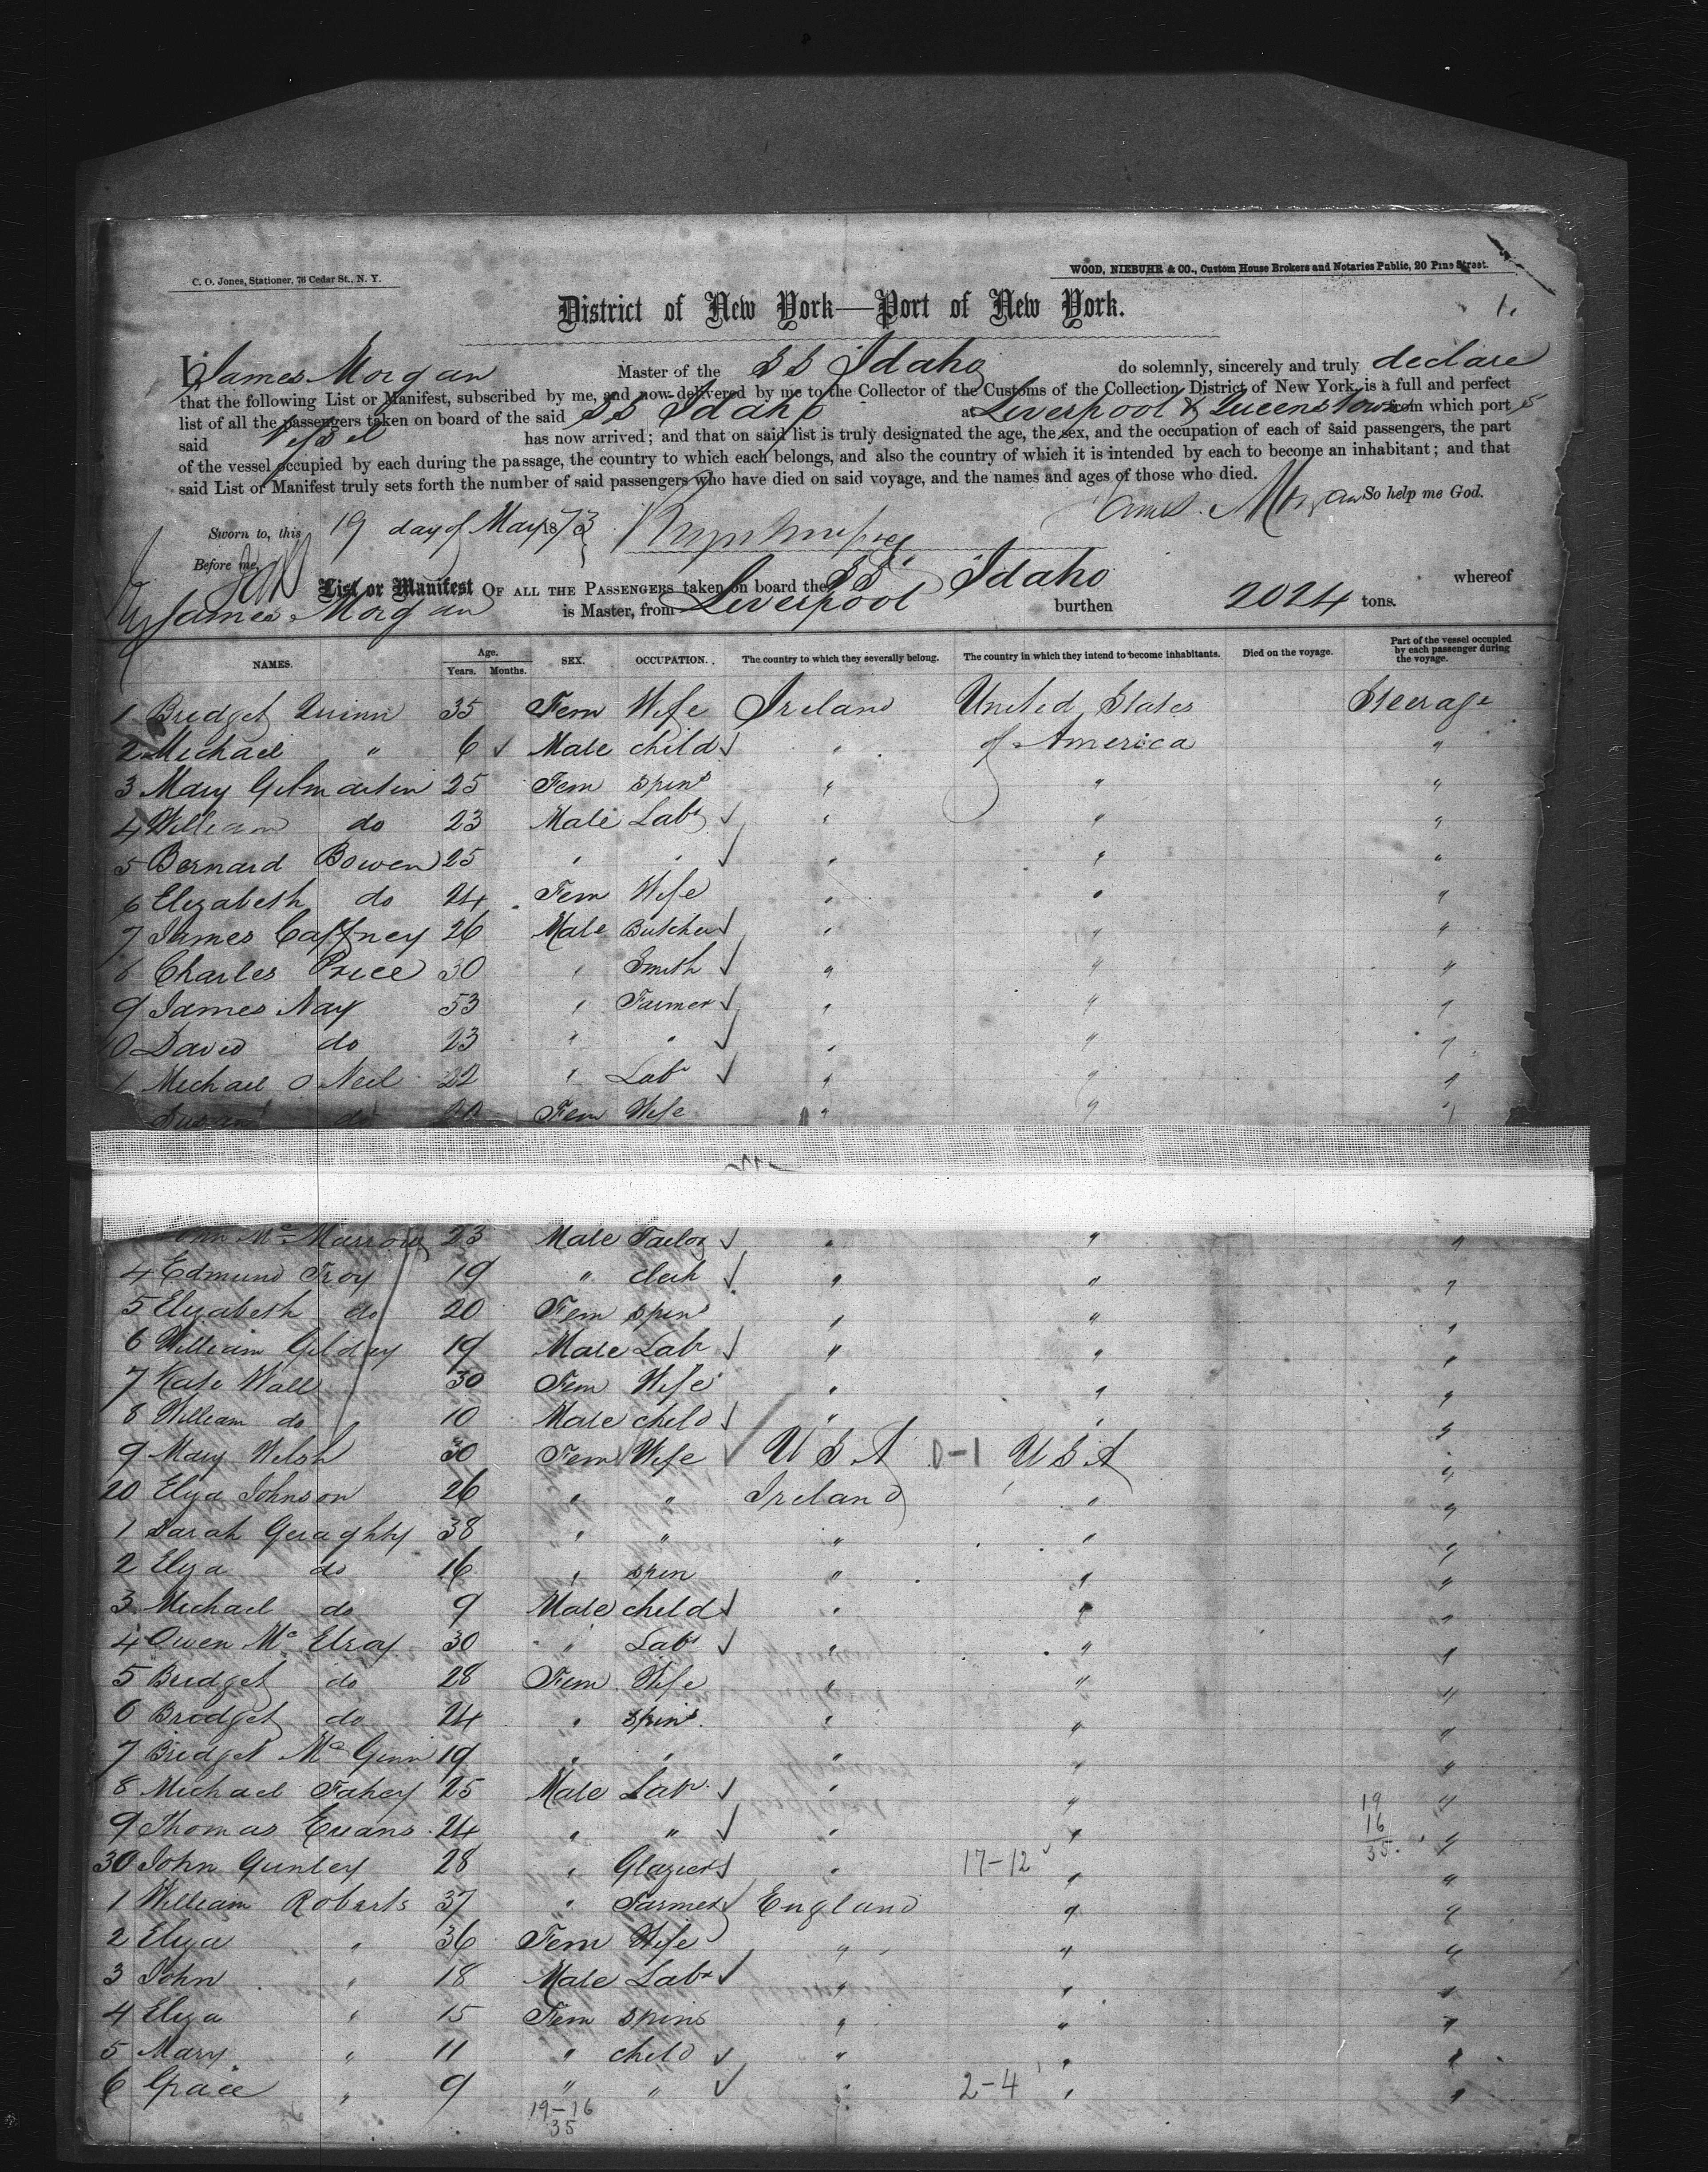 C. O. Jones, Stationer, 76 Cedar St., N. Y.
WOOD, NIEBUHR & CO., Custom House Brokers and Notaries Public, 20 Pine Street.
1.
District of New York—Port of New York.
I, James Morgan Master of the SS Idaho do solemnly, sincerely and truly declare
that the following List or Manifest, subscribed by me, and now delivered by me to the Collector of the Customs of the Collection District of New York, is a full and perfect
list of all the passengers taken on board of the said SS Idaho at Liverpool & Queenstown from which port s
said Vessel has now arrived; and that on said list is truly designated the age, the sex, and the occupation of each of said passengers, the part
of the vessel occupied by each during the passage, the country to which each belongs, and also the country of which it is intended by each to become an inhabitant; and that
said List or Manifest truly sets forth the number of said passengers who have died on said voyage, and the names and ages of those who died.
James Morgan So help me God.
Sworn to, this 19 day of May 1873
Before me,
List or Manifest OF ALL THE PASSENGERS taken on board the SS Idaho whereof
James Morgan is Master, from Liverpool burthen 2024 tons.
NAMES. Age. Years. Months. SEX. OCCUPATION. The country to which they severally belong. The country in which they intend to become inhabitants. Died on the voyage. Part of the vessel occupied by each passenger during the voyage.
1 Bridget Quinn 35 Fem Wife Ireland United States Steerage
2 Michael " 6 Male child " of America "
3 Mary Gilmartin 25 Fem spins " " "
4 William do 23 Male Labr " " "
5 Bernard Bowen 25 " " " " "
6 Elizabeth do 24 Fem Wife " " "
7 James Caffney 26 Male Butcher " " "
8 Charles Price 30 " Smith " " "
9 James Nay 53 " Farmer " " "
10 David do 23 " " " " "
1 Michael O Neil 22 " Labr " " "
Susan do 20 Fem Wife " " "
John McMarrow 23 Male Tailor " " "
4 Edmund Troy 19 " clerk " " "
5 Elizabeth do 20 Fem spins " " "
6 William Gildey 19 Male Labr " " "
7 Kate Wall 30 Fem Wife " " "
8 William do 10 Male child " " "
9 Mary Welsh 30 Fem Wife U S A 0-1 U S A "
20 Eliza Johnson 26 " " Ireland " "
1 Sarah Geraghty 38 " " " " "
2 Eliza do 16 " spin " " "
3 Michael do 9 Male child " " "
4 Owen McElroy 30 " Labr " " "
5 Bridget do 28 Fem Wife " " "
6 Bridget do 24 " spins " " "
7 Bridget McGinn 19 " " " " "
8 Michael Fahey 25 Male Labr " " "
9 Thomas Evans 24 " " " " 19 16 35. "
30 John Gunley 28 " Glazier " 17-12 " "
1 William Roberts 37 " Farmer England " "
2 Eliza " 36 Fem Wife " " "
3 John " 18 Male Labr " " "
4 Eliza " 15 Fem spins " " "
5 Mary " 11 " child " " "
6 Grace " 9 " " " 2-4 " "
19-16
35